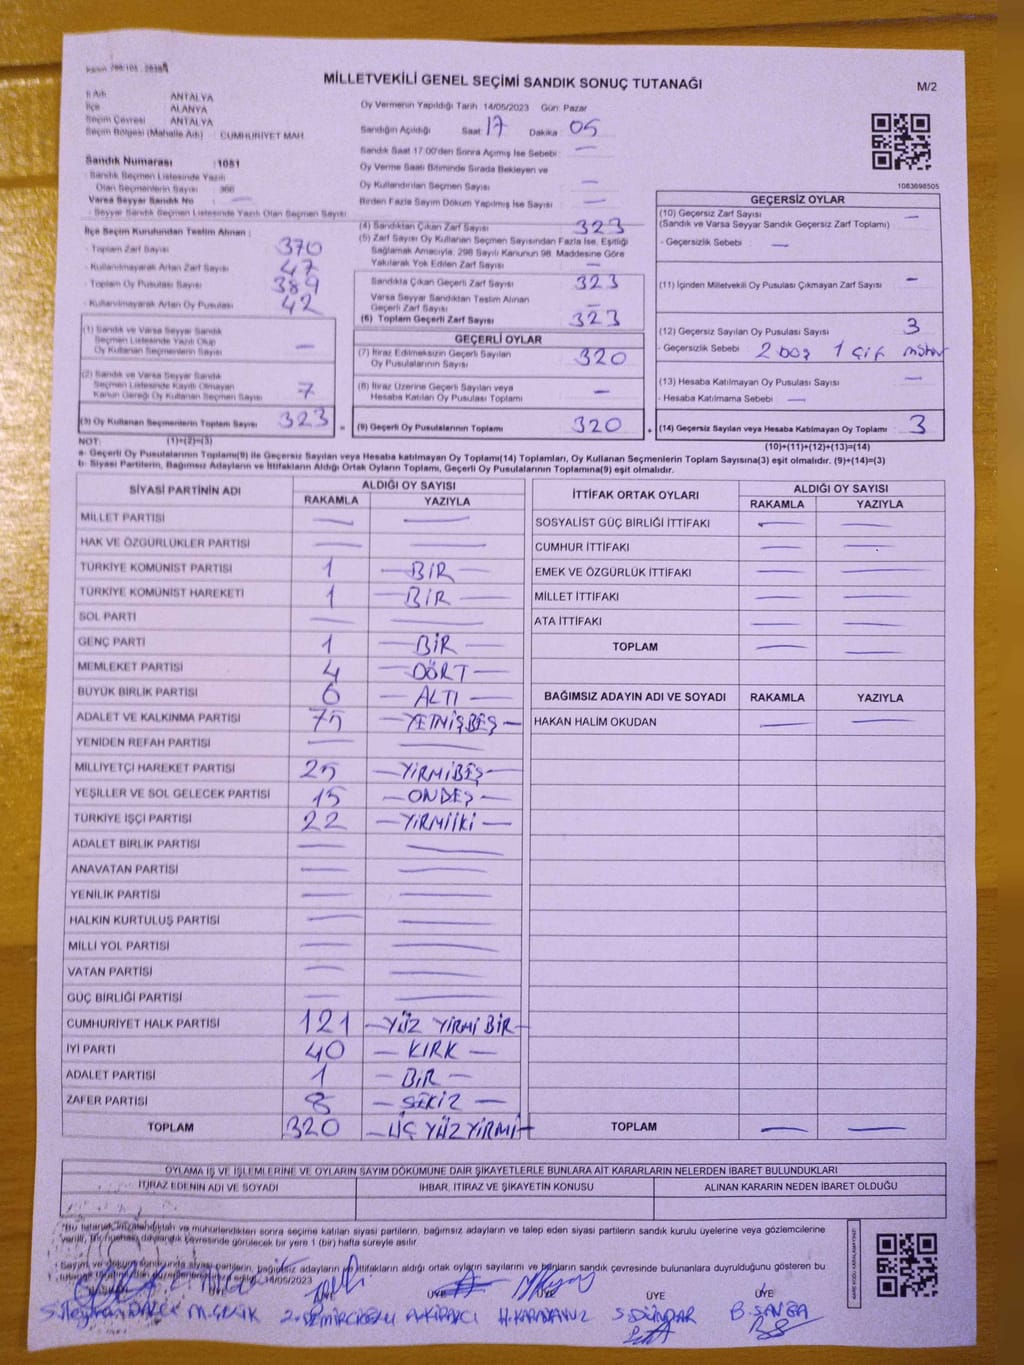 MİLLETVEKİLİ GENEL SEÇİMİ SANDIK SONUÇ TUTANAĞI
M/2
İl Adı ANTALYA
İlçe ALANYA
Seçim Çevresi ANTALYA
Seçim Bölgesi (Mahalle Adı) CUMHURİYET MAH.
Sandık Numarası :1051
Sandık Seçmen Listesinde Yazılı
Olan Seçmenlerin Sayısı 366
Varsa Seyyar Sandık No —
Seyyar Sandık Seçmen Listesinde Yazılı Olan Seçmen Sayısı
İlçe Seçim Kurulundan Teslim Alınan :
- Toplam Zarf Sayısı 370
- Kullanılmayarak Artan Zarf Sayısı 47
- Toplam Oy Pusulası Sayısı 389
- Kullanılmayarak Artan Oy Pusulası 42
(1) Sandık ve Varsa Seyyar Sandık
Seçmen Listesinde Yazılı Olup
Oy Kullanan Seçmenlerin Sayısı —
(2) Sandık ve Varsa Seyyar Sandık
Seçmen Listesinde Kayıtlı Olmayan
Kanun Gereği Oy Kullanan Seçmen Sayısı 7
(3) Oy Kullanan Seçmenlerin Toplam Sayısı 323
Oy Vermenin Yapıldığı Tarih 14/05/2023 Gün: Pazar
Sandığın Açıldığı Saat 17 Dakika 05
Sandık Saat 17:00'den Sonra Açılmış İse Sebebi —
Oy Verme Saati Bitiminde Sırada Bekleyen ve
Oy Kullandırılan Seçmen Sayısı —
Birden Fazla Sayım Döküm Yapılmış İse Sayısı —
(4) Sandıktan Çıkan Zarf Sayısı 323
(5) Zarf Sayısı Oy Kullanan Seçmen Sayısından Fazla İse, Eşitliği
Sağlamak Amacıyla, 298 Sayılı Kanunun 98. Maddesine Göre
Yakılarak Yok Edilen Zarf Sayısı —
Sandıkta Çıkan Geçerli Zarf Sayısı 323
Varsa Seyyar Sandıktan Teslim Alınan
Geçerli Zarf Sayısı —
(6) Toplam Geçerli Zarf Sayısı 323
GEÇERLİ OYLAR
(7) İtiraz Edilmeksizin Geçerli Sayılan
Oy Pusulalarının Sayısı 320
(8) İtiraz Üzerine Geçerli Sayılan veya
Hesaba Katılan Oy Pusulası Toplamı —
(9) Geçerli Oy Pusulalarının Toplamı 320
1083698505
GEÇERSİZ OYLAR
(10) Geçersiz Zarf Sayısı —
(Sandık ve Varsa Seyyar Sandık Geçersiz Zarf Toplamı)
- Geçersizlik Sebebi —
(11) İçinden Milletvekili Oy Pusulası Çıkmayan Zarf Sayısı —
(12) Geçersiz Sayılan Oy Pusulası Sayısı 3
- Geçersizlik Sebebi 2 boş 1 çif
(13) Hesaba Katılmayan Oy Pusulası Sayısı —
- Hesaba Katılmama Sebebi —
(14) Geçersiz Sayılan veya Hesaba Katılmayan Oy Toplamı 3
NOT: (1)+(2)=(3) (10)+(11)+(12)+(13)=(14)
a- Geçerli Oy Pusulalarının Toplamı(9) ile Geçersiz Sayılan veya Hesaba katılmayan Oy Toplamı(14) Toplamları, Oy Kullanan Seçmenlerin Toplam Sayısına(3) eşit olmalıdır. (9)+(14)=(3)
b- Siyasi Partilerin, Bağımsız Adayların ve İttifakların Aldığı Ortak Oyların Toplamı, Geçerli Oy Pusulalarının Toplamına(9) eşit olmalıdır.
SİYASİ PARTİNİN ADI ALDIĞI OY SAYISI
RAKAMLA YAZIYLA
MİLLET PARTİSİ — —
HAK VE ÖZGÜRLÜKLER PARTİSİ — —
TÜRKİYE KOMÜNİST PARTİSİ 1 — BİR —
TÜRKİYE KOMÜNİST HAREKETİ 1 — BİR —
SOL PARTİ — —
GENÇ PARTİ 1 — BİR —
MEMLEKET PARTİSİ 4 — DÖRT —
BÜYÜK BİRLİK PARTİSİ 6 — ALTI —
ADALET VE KALKINMA PARTİSİ 75 — YETNİŞBEŞ —
YENİDEN REFAH PARTİSİ — —
MİLLİYETÇİ HAREKET PARTİSİ 25 — YİRMİBEŞ —
YEŞİLLER VE SOL GELECEK PARTİSİ 15 — ONDEŞ —
TÜRKİYE İŞÇİ PARTİSİ 22 — YİRMİİKİ —
ADALET BİRLİK PARTİSİ — —
ANAVATAN PARTİSİ — —
YENİLİK PARTİSİ — —
HALKIN KURTULUŞ PARTİSİ — —
MİLLİ YOL PARTİSİ — —
VATAN PARTİSİ — —
GÜÇ BİRLİĞİ PARTİSİ — —
CUMHURİYET HALK PARTİSİ 121 — YÜZ YİRMİ BİR —
İYİ PARTİ 40 — KIRK —
ADALET PARTİSİ 1 — BİR —
ZAFER PARTİSİ 8 — SEKİZ —
TOPLAM 320 — ÜÇ YÜZ YİRMİ —
İTTİFAK ORTAK OYLARI ALDIĞI OY SAYISI
RAKAMLA YAZIYLA
SOSYALİST GÜÇ BİRLİĞİ İTTİFAKI — —
CUMHUR İTTİFAKI — —
EMEK VE ÖZGÜRLÜK İTTİFAKI — —
MİLLET İTTİFAKI — —
ATA İTTİFAKI — —
TOPLAM — —
BAĞIMSIZ ADAYIN ADI VE SOYADI RAKAMLA YAZIYLA
HAKAN HALİM OKUDAN — —
TOPLAM — —
OYLAMA İŞ VE İŞLEMLERİNE VE OYLARIN SAYIM DÖKÜMÜNE DAİR ŞİKAYETLERLE BUNLARA AİT KARARLARIN NELERDEN İBARET BULUNDUKLARI
İTİRAZ EDENİN ADI VE SOYADI İHBAR, İTİRAZ VE ŞİKAYETİN KONUSU ALINAN KARARIN NEDEN İBARET OLDUĞU
"Bu tutanak imzalandıktan ve mühürlendikten sonra seçime katılan siyasi partilerin, bağımsız adayların ve talep eden siyasi partilerin sandık kurulu üyelerine veya gözlemcilerine
verilir, bir nüshası da sandık çevresinde görülecek bir yere 1 (bir) hafta süreyle asılır.
Sayım ve döküm sonunda siyasi partilerin, bağımsız adayların ve ittifakların aldığı ortak oyların sayılarını ve bunların sandık çevresinde bulunanlara duyrulduğunu gösteren bu
14/05/2023
ÜYE ÜYE ÜYE ÜYE ÜYE
M. ÇELİK Z. DEMİRCİOĞLU H. KARAYAVUZ S. DÜNDAR